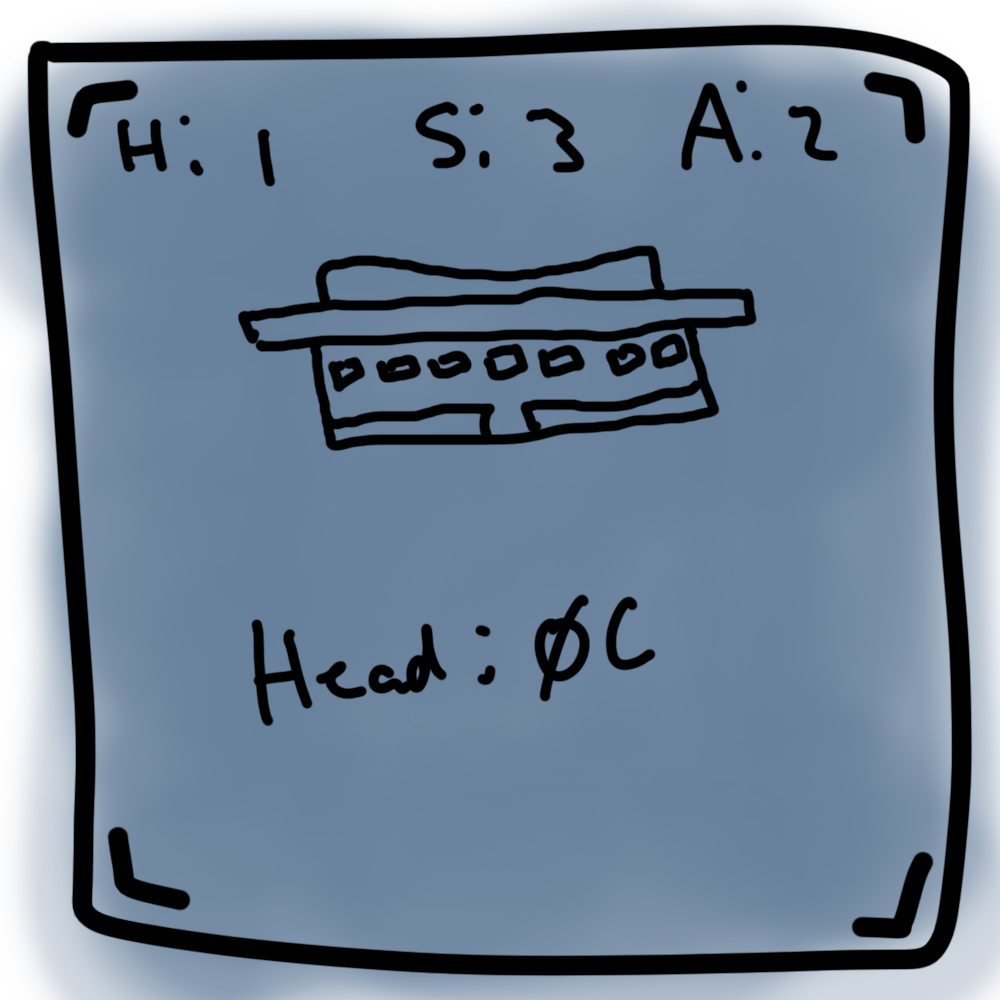 H: 1 S: 3 A: 2
Head: ØC